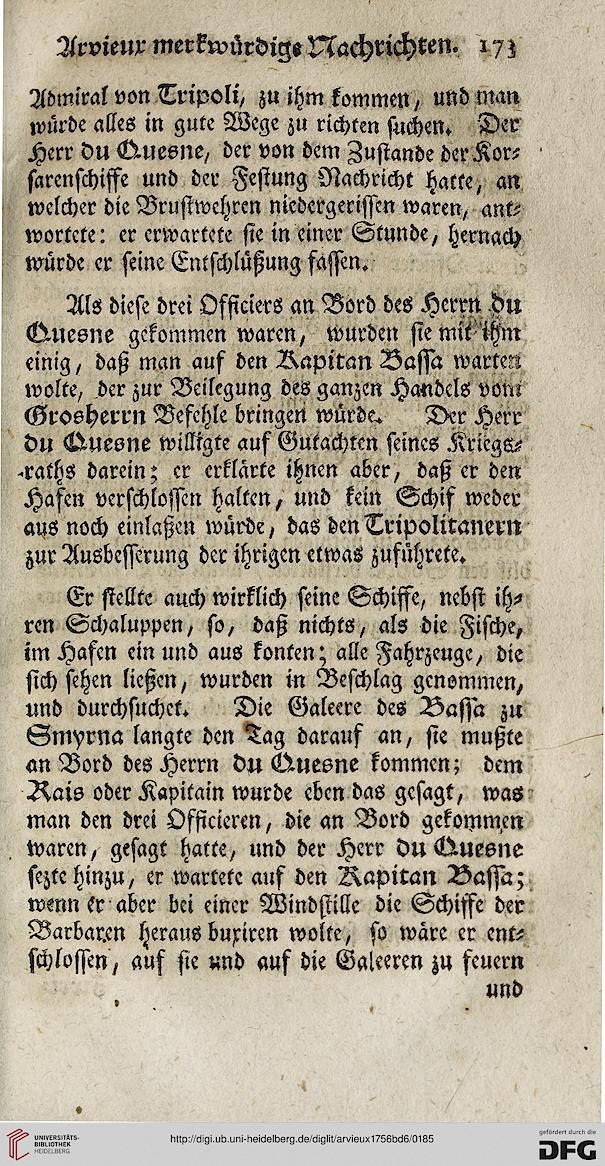 Arvieux merkwürdige Nachrichten. 173
Admiral von Tripoli, zu ihm kommen, und man
würde alles in gute Wege zu richten suchen. Der
Herr du Quesne, der von dem Zustande der Kor-
sarenschiffe und der Festung Nachricht hatte, an
welcher die Brustwehren niedergerissen waren, ant-
wortete: er erwartete sie in einer Stunde, hernach
würde er seine Entschlüßung fassen.
Als diese drei Officiers an Bord des Herrn du
Quesne gekommen waren, wurden sie mit ihm
einig, daß man auf den Kapitan Bassa warten
wolte, der zur Beilegung des ganzen Handels vom
Grosherrn Befehle bringen würde. Der Herr
du Quesne willigte auf Gutachten seines Kriegs-
raths darein; er erklärte ihnen aber, daß er den
Hafen verschlossen halten, und kein Schif weder
aus noch einlaßen würde, das den Tripolitanern
zur Ausbesserung der ihrigen etwas zuführete.
Er stellte auch wirklich seine Schiffe, nebst ih-
ren Schaluppen, so, daß nichts, als die Fische,
im Hafen ein und aus konten; alle Fahrzeuge, die
sich sehen ließen, wurden in Beschlag genommen,
und durchsuchet. Die Galeere des Bassa zu
Smyrna langte den Tag darauf an, sie mußte
an Bord des Herrn du Quesne kommen; dem
Rais oder Kapitain wurde eben das gesagt, was
man den drei Officieren, die an Bord gekommen
waren, gesagt hatte, und der Herr du Quesne
sezte hinzu, er wartete auf den Kapitan Bassa;
wenn er aber bei einer Windstille die Schiffe der
Barbaren heraus buxiren wolte, so wäre er ent-
schlossen, auf sie und auf die Galeeren zu feuern
und
UNIVERSITÄTS-
BIBLIOTHEK
HEIDELBERG
http://digi.ub.uni-heidelberg.de/diglit/arvieux1756bd6/0185
gefördert durch die
DFG